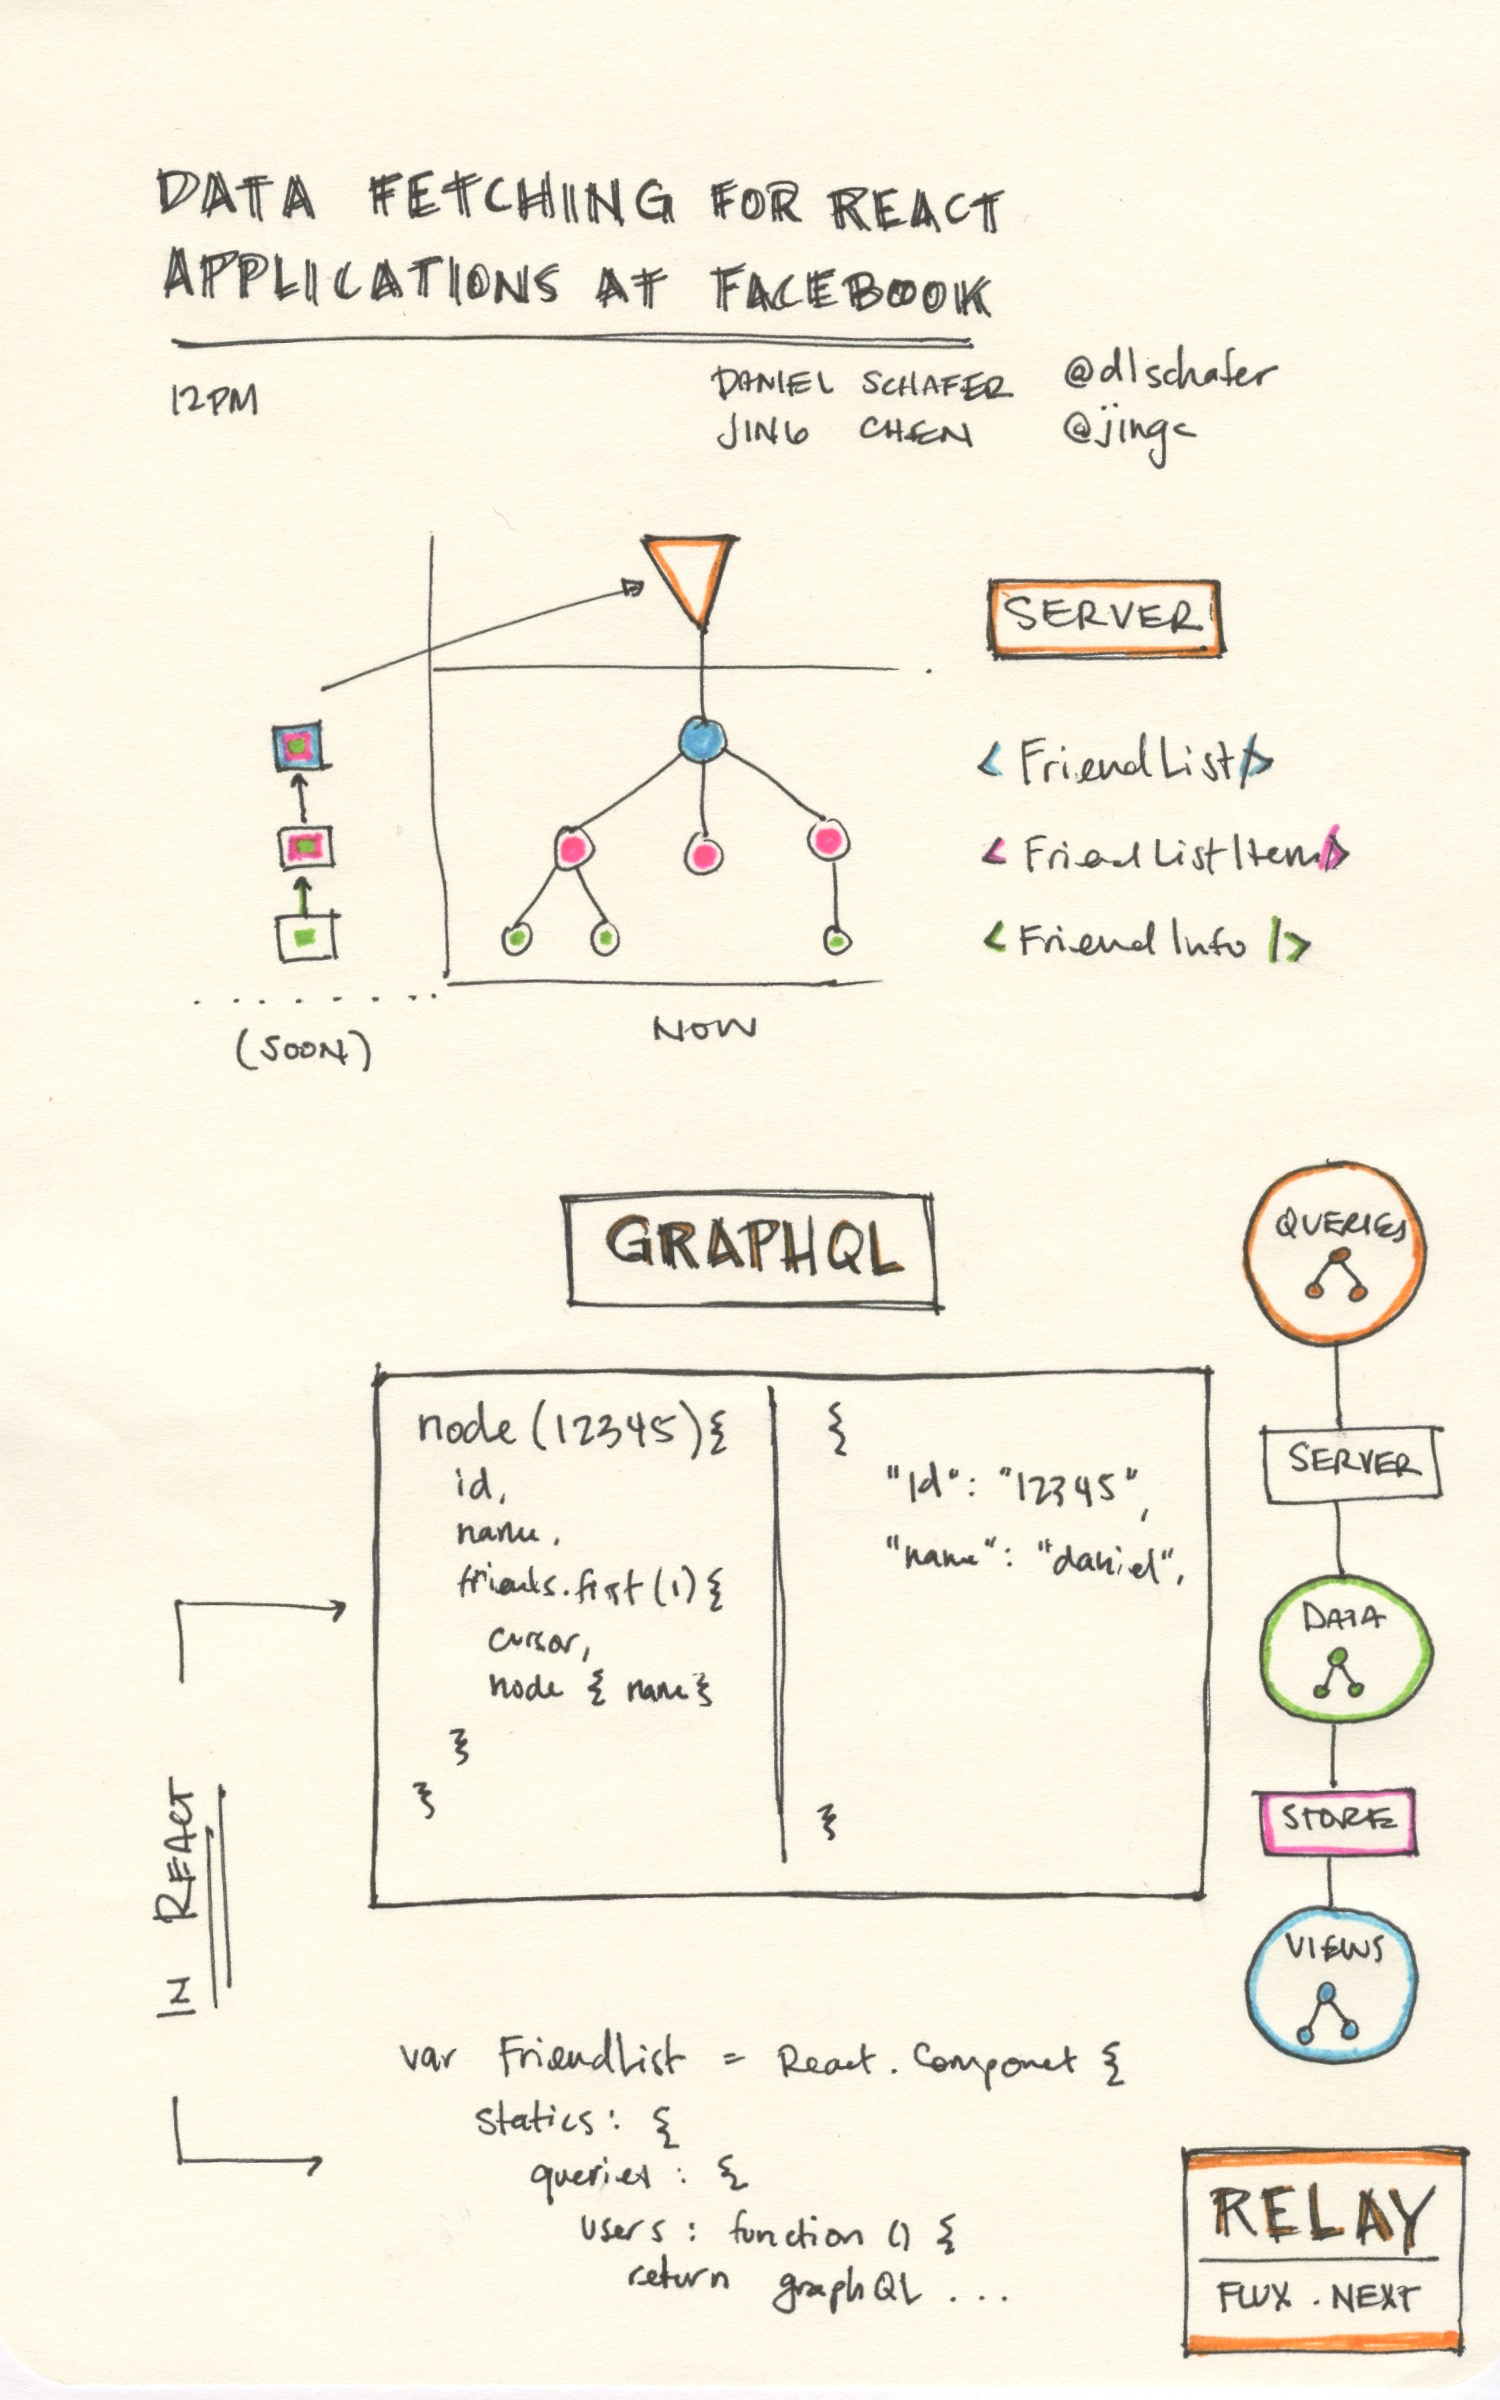 DATA FETCHING FOR REACT
APPLICATIONS AT FACEBOOK
12PM
DANIEL SCHAFER @dlschafer
JING CHEN @jingc
SERVER
<FriendList/>
<FriendListItem/>
<FriendInfo/>
(SOON)
NOW
GRAPHQL
node(12345){
id,
name,
friends.first(1){
cursor,
node { name}
}
}
{
"id": "12345",
"name": "daniel",
}
QUERIES
SERVER
DATA
STORE
VIEWS
IN REACT
var FriendList = React.Componet {
statics: {
queries: {
users: function () {
return graphQL ...
RELAY
FLUX.NEXT